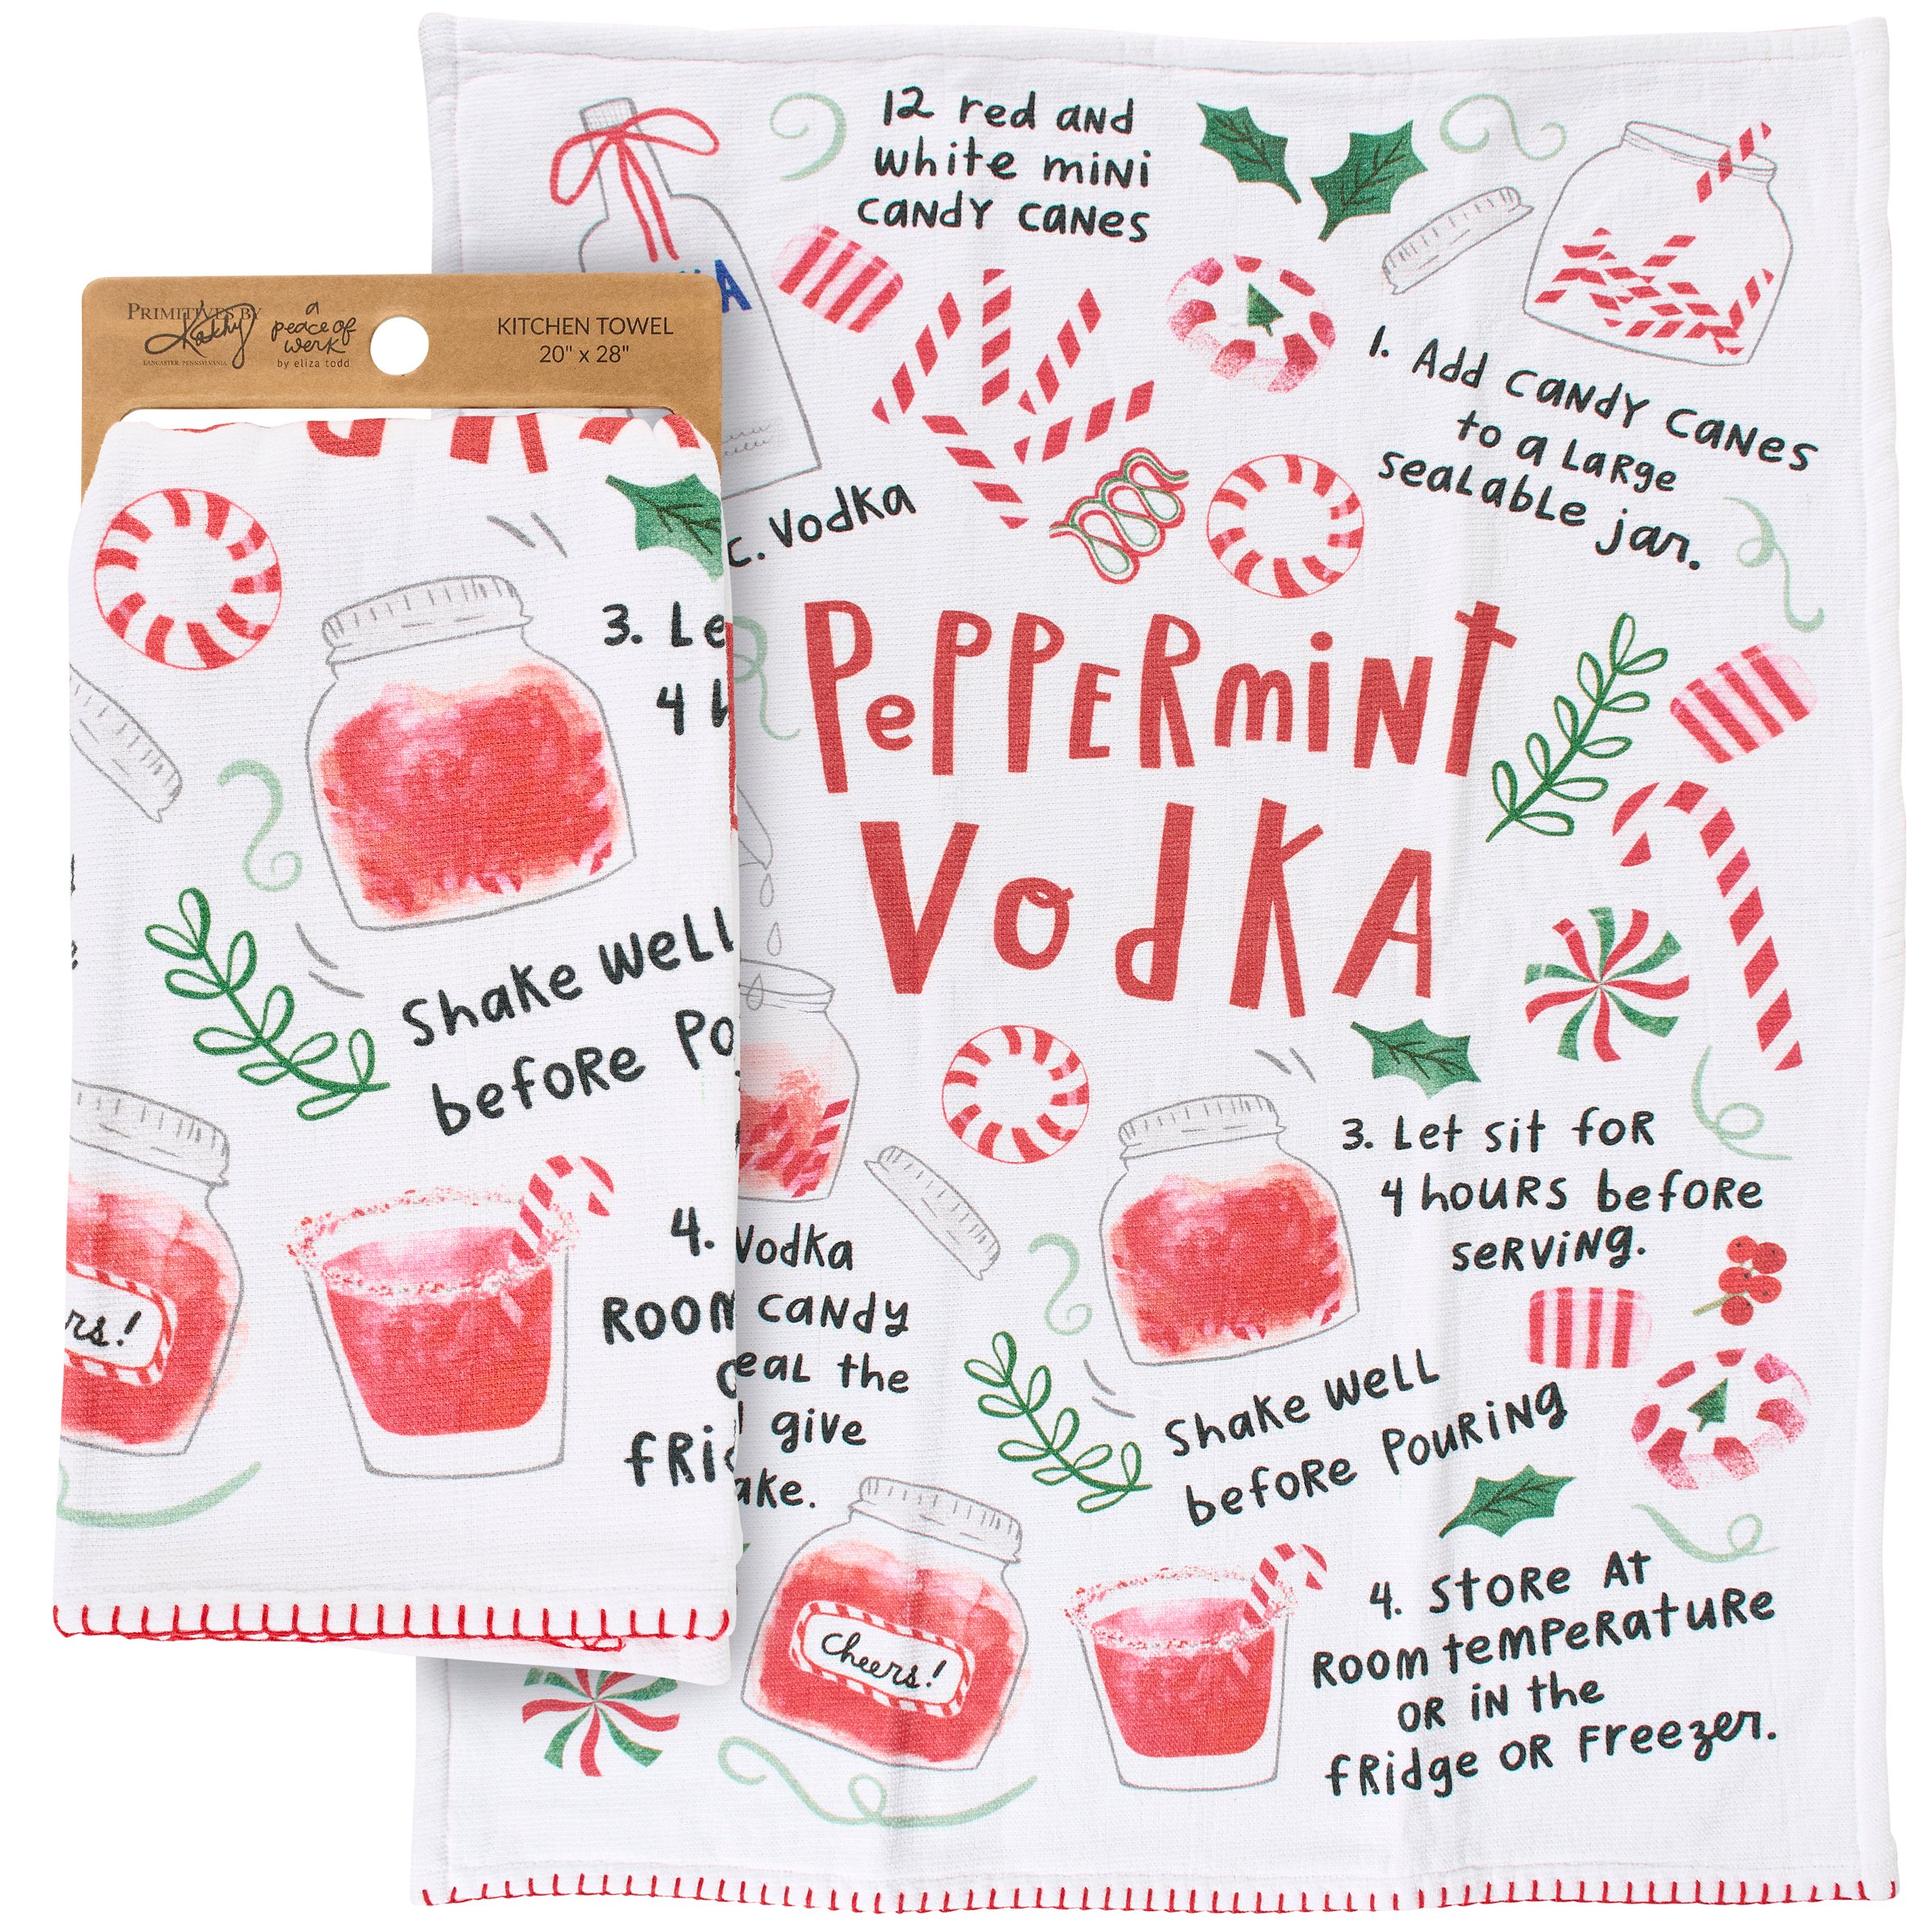 12 red and
white mini
candy canes
1. Add candy canes
to a large
sealable jar.
PRIMITIVES BY
Kathy
LANCASTER, PENNSYLVANIA
a
peace of
werk
by eliza todd
KITCHEN TOWEL
20" x 28"
c. Vodka
PEPPERMINT
VODKA
3. Let sit for
4 hours before
serving.
Vodka
candy
the
give
Shake well
before pouring
cheers!
4. Store at
room temperature
or in the
fridge or freezer.
3.
4
Shake well
before
4.